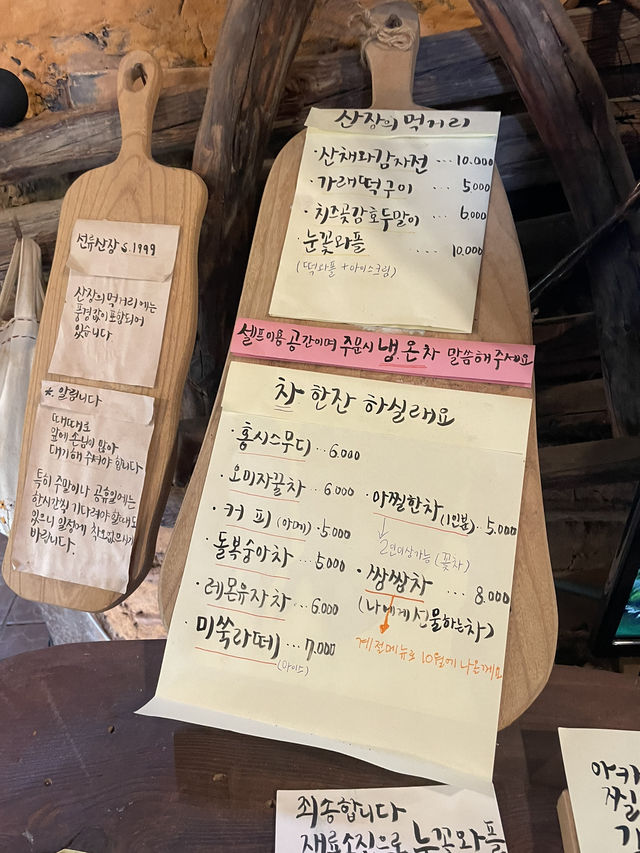 선류산장 S.1999
산장의 먹거리에는
풍경값이 포함되어
있습니다
* 알립니다
때때로
앞에 손님이 많아
대기해 주셔야 합니다
특히 주말이나 공휴일에는
한시간씩 기다려야 할때도
있으니 일정에 착오없으시기
바랍니다.
산장의 먹거리
·산채와감자전 ... 10.000
·가래떡구이 ... 5.000
·치즈곶감호두말이 ... 6.000
·눈꽃와플 ... 10.000
(떡와플 + 아이스크림)
셀프이용 공간이며 주문시 냉.온차 말씀해주세요
차 한잔 하실래요
·홍시스무디 ... 6.000
오미자꿀차 ... 6.000
·커피 (아메) ·5.000
·돌복숭아차 ... 5.000
·레몬유자차 ... 6.000
·미쑥라떼 ... 7.000
(아이스)
·아찔한차 (1인분). 5.000
2인이상가능 (꽃차)
·쌍쌍차 ... 8.000
(나에게 선물하는차)
계절메뉴로 10월에 나온게요
죄송합니다
재료소진으로 눈꽃와플
아카